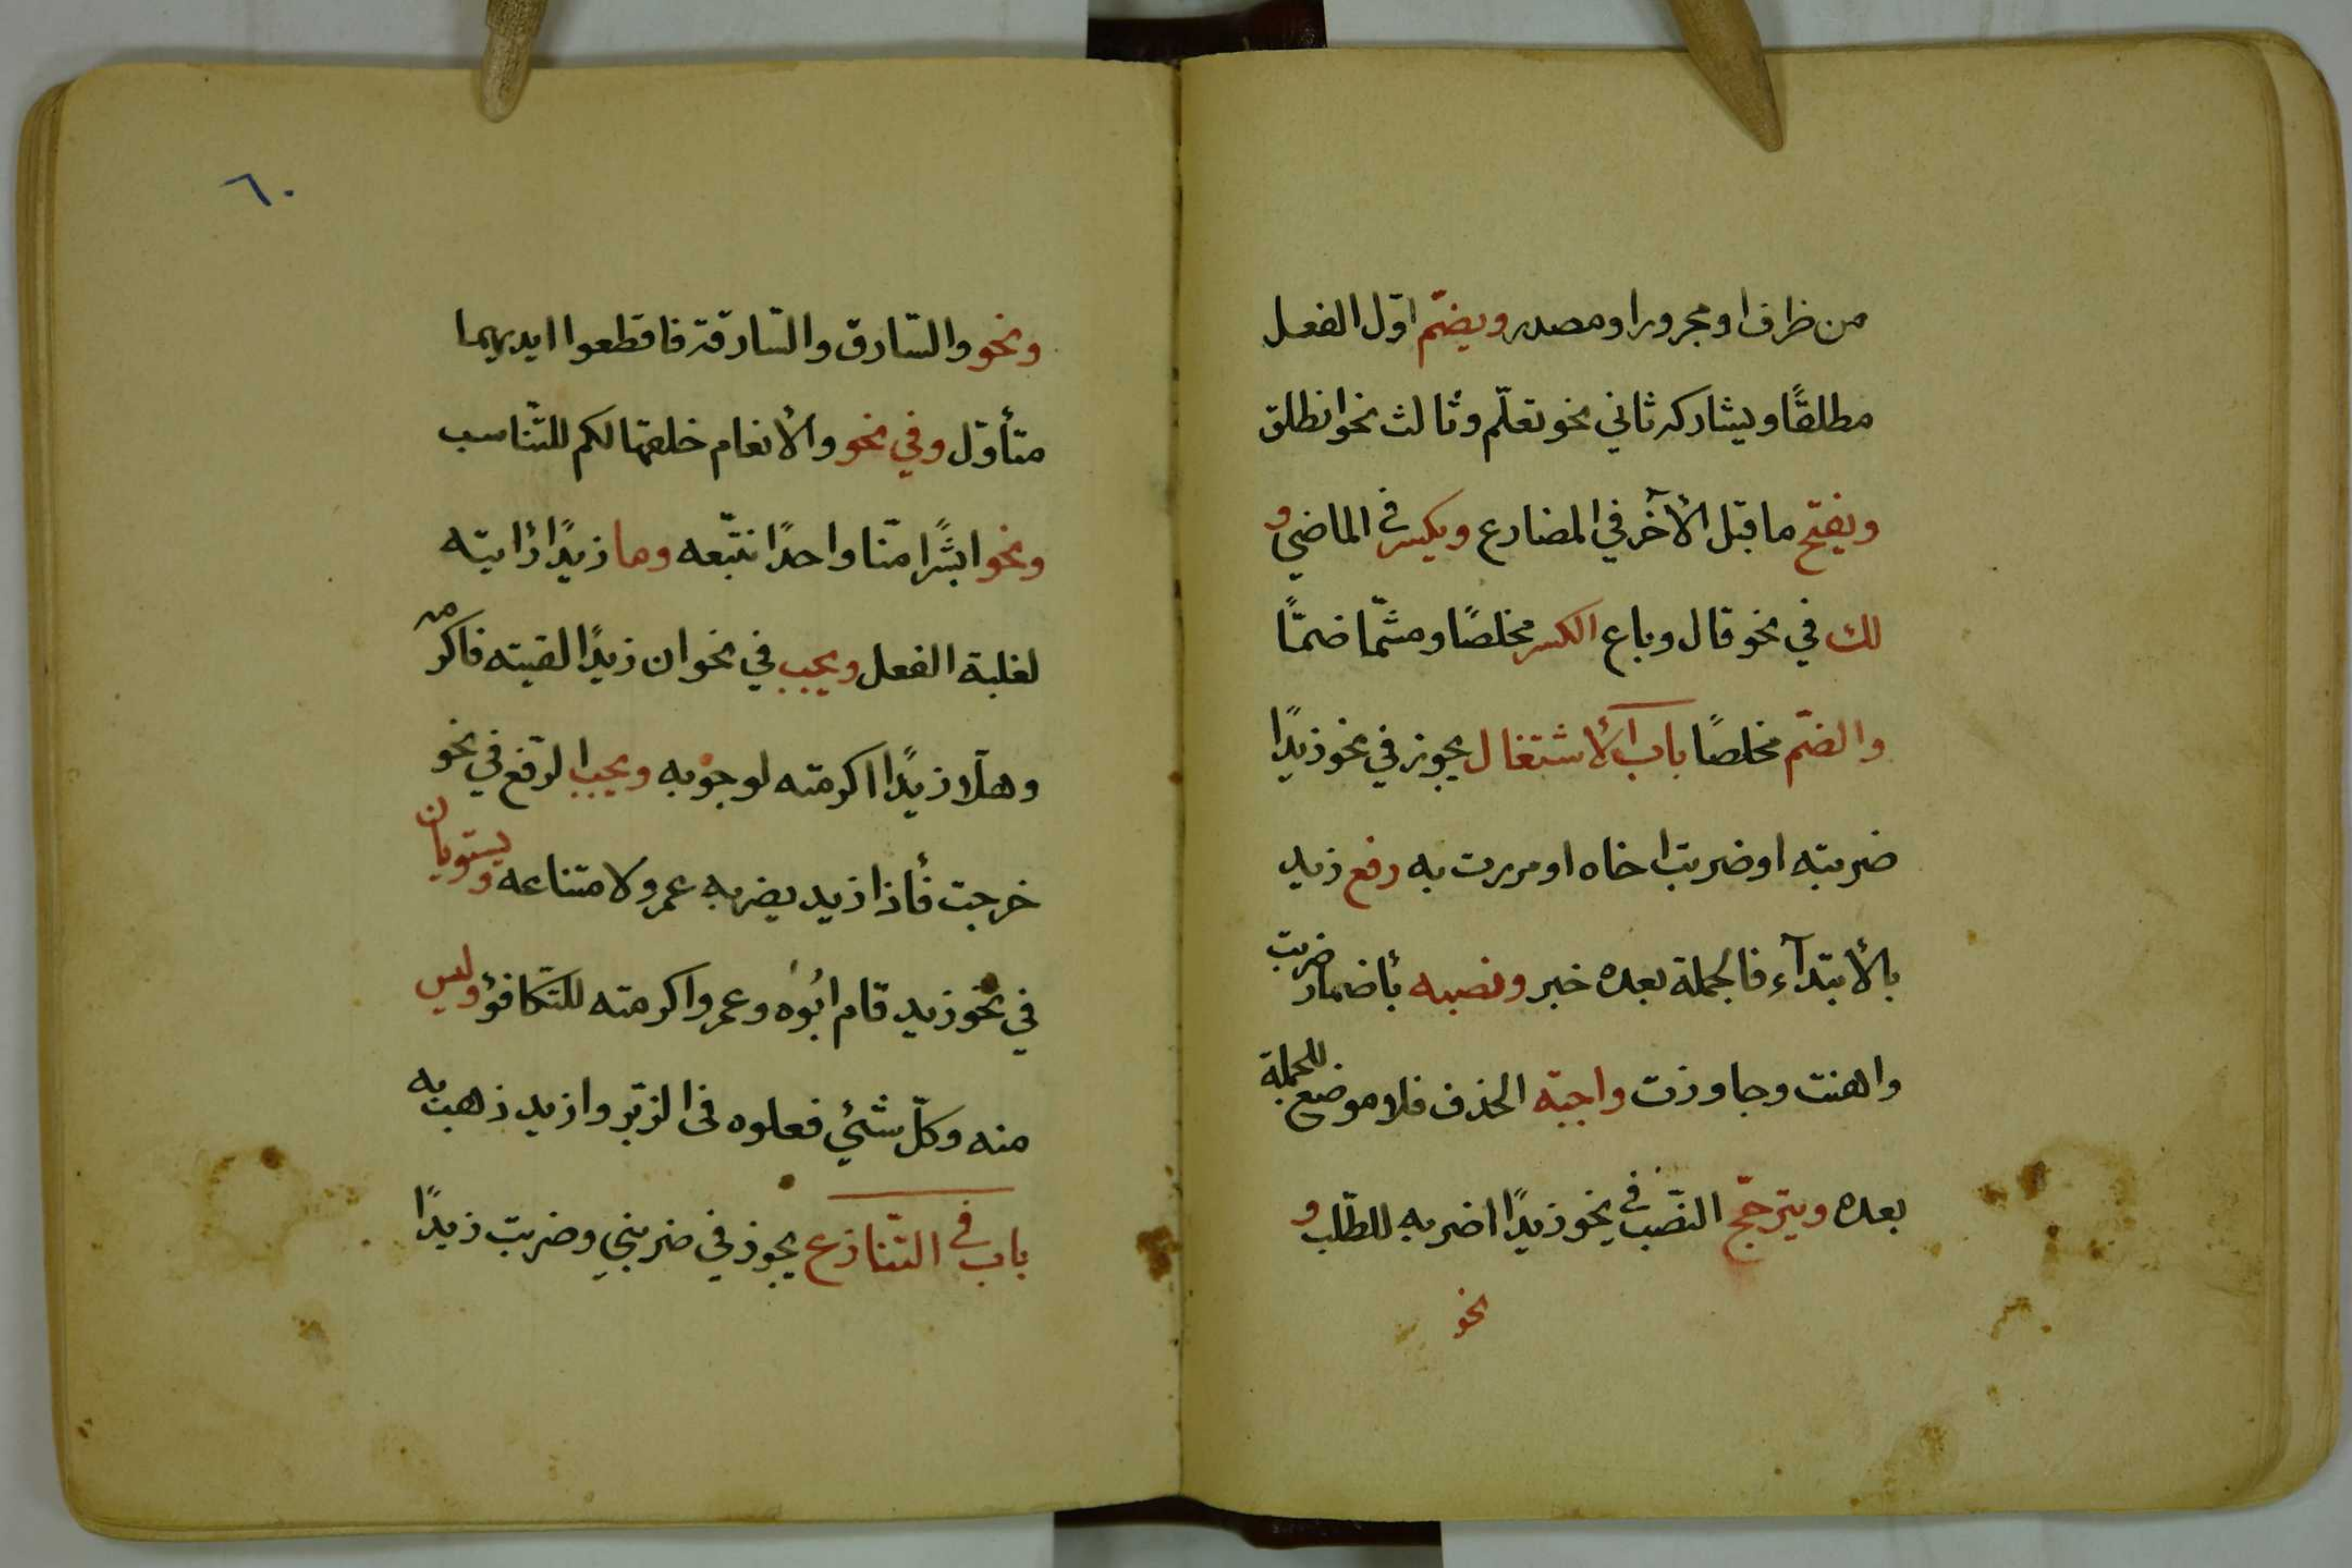 من ظرف او مجرور او مصدر ويضمّ اوّل الفعل
مطلقًا ويشاركه ثاني نحو تعلّم وثالث نحو انطلق
ويفتح ما قبل الأخر في المضارع ويكسر في الماضي و
لك في نحو قال وباع الكسر مخلصًا ومشمّا ضمًّا
والضّم مخلصًا باب الأشتغال يجوز في نحو زيدًا
ضربته او ضربت اخاه او مررت به رفع زيد
بالأبتدآء فالجملة بعده خبر ونصبه بأضمار ضربت
واهنت وجاوزت واجبة الحذف فلا موضع للجملة
بعده ويترجّح النّصب في نحو زيدًا اضربه للطّلب و
نحو
٦٠
ونحو والسّارق والسّارقة فاقطعوا ايديهما
متأوّل وفي نحو والأنعام خلقها لكم للتّناسب
ونحو ابشرًا منّا واحدًا نتّبعه وما زيدًا رأيته
لغلبة الفعل ويجب في نحو ان زيدًا لقيته فاكرمه
وهلّا زيدًا اكرمته لوجوبه ويجب الرّفع في نحو
خرجت فأذا زيد يضربه عمرو لامتناعه ويستويان
في نحو زيد قام ابوه وعمروا كرمته للتّكافؤ وليس
منه وكلّ شئي فعلوه فى الزّبر وازيد ذهب به
باب في التّنازع يجوز في ضربني وضربت زيدًا